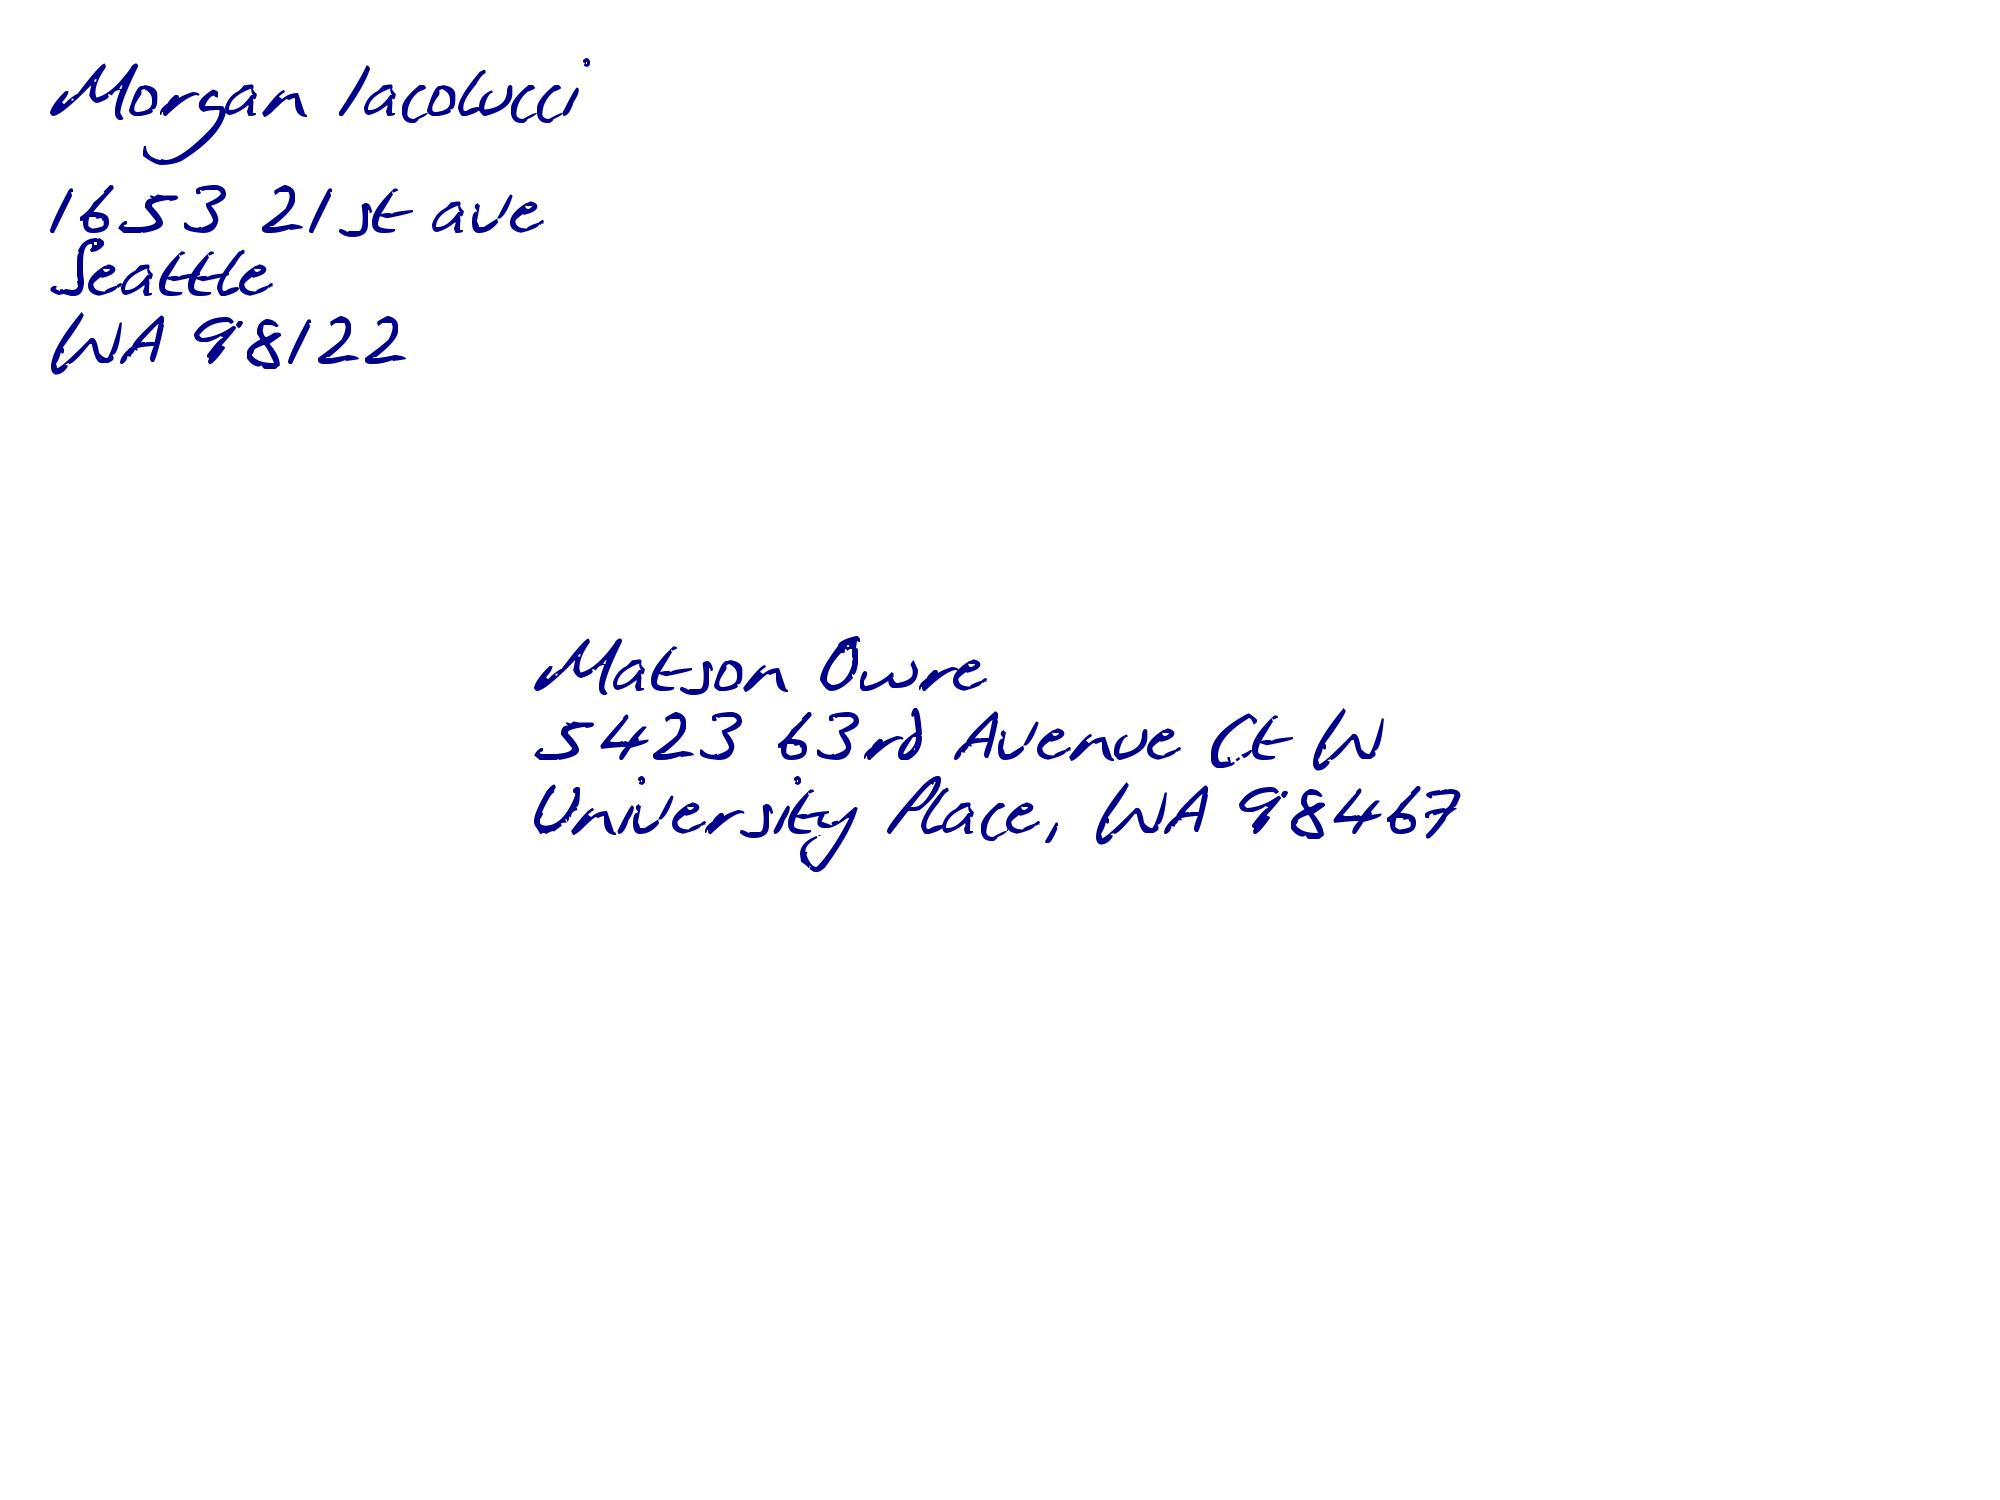 Morgan Iacolucci
1653 21st ave
Seattle
WA 98122
Matson Owre
5423 63rd Avenue Ct W
University Place, WA 98467